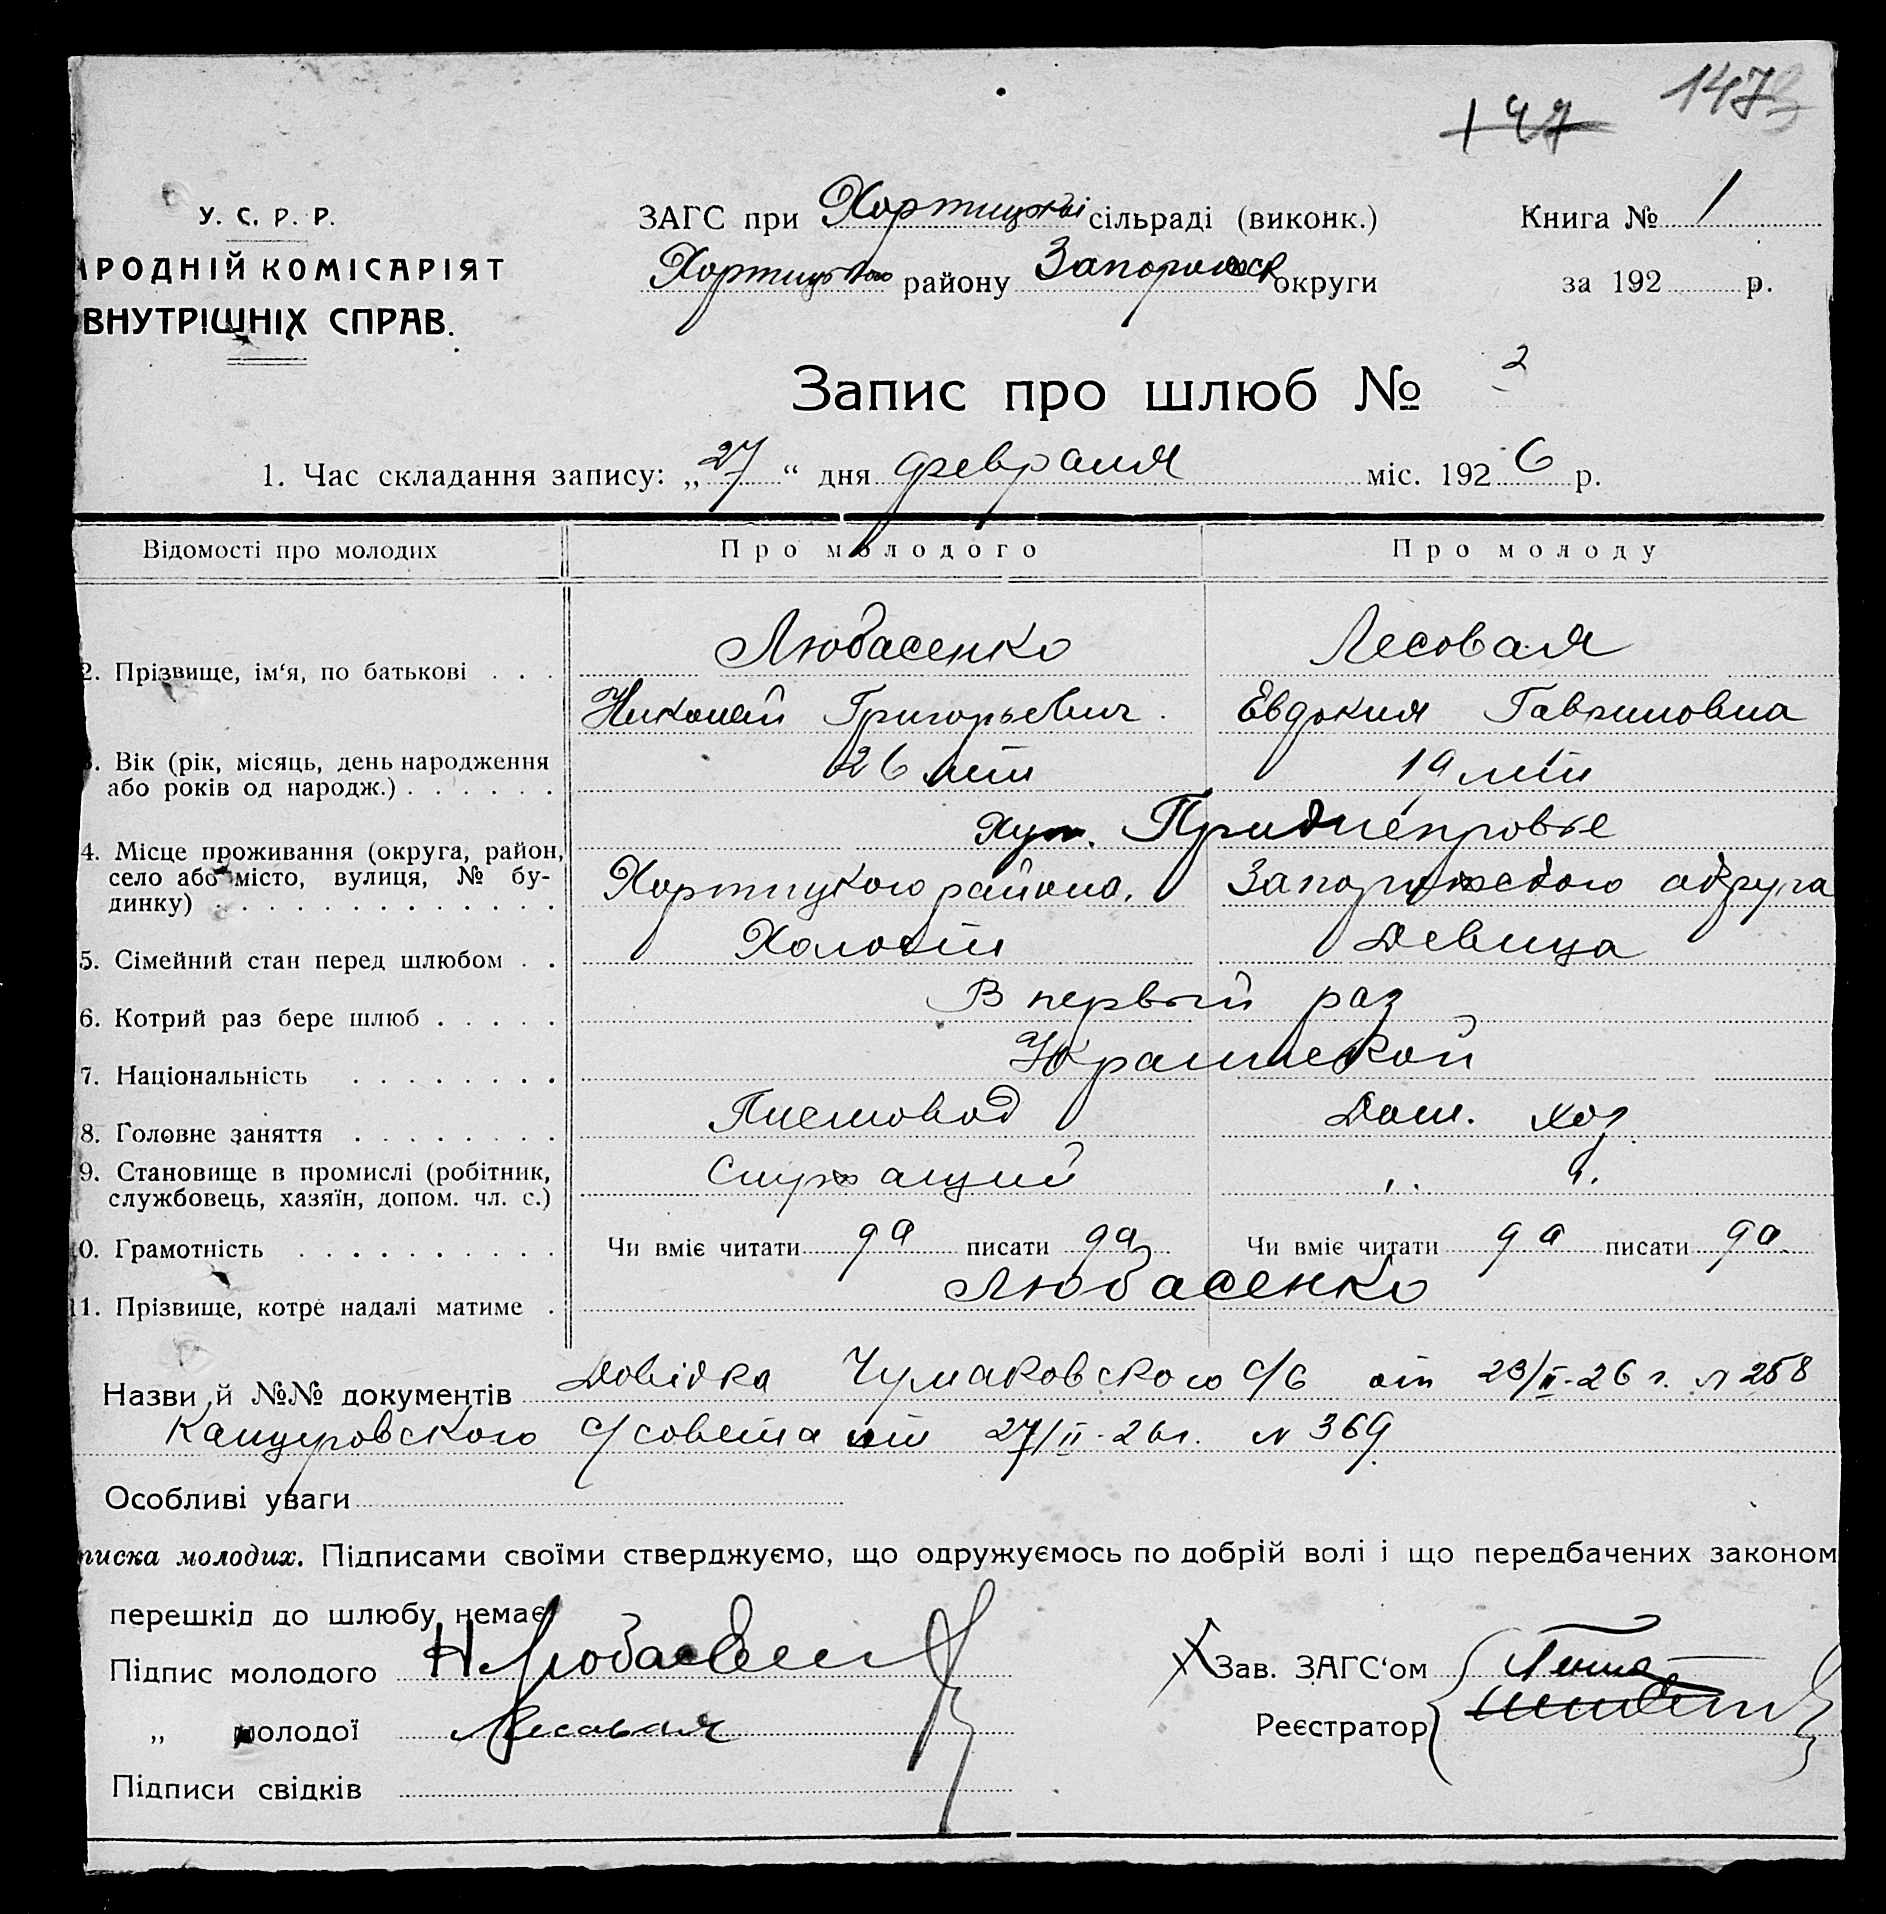 147
147
У. С. Р. Р.
АРОДНІЙ КОМІСАРІЯТ
ВНУТРІШНІХ СПРАВ.
ЗАГС при Хортицькі сільраді (виконк.)
Книга № 1
Хортицького району Запорожск округи
за 192 р.
Запис про шлюб № 2
1. Час складання запису: „27“ дня февраля міс. 1926 р.
Відомості про молодих Про молодого Про молоду
2. Прізвище, ім‘я, по батькові . . . Любасенко Лесовая
Николай Григорьевич. Евдокия Гавриловна
3. Вік (рік, місяць, день народження 26 лет 19 лет
або років од народж.) . . . . . .
хут. Приднепровье
4. Місце проживання (округа, район,
село або місто, вулиця, № бу- Хортицкого района. Запорожского округа
динку) . . . . . . . . . . . . .
5. Сімейний стан перед шлюбом . . Холост Девица
6. Котрий раз бере шлюб . . . . . В первый раз
7. Національність . . . . . . . . Украинской
8. Головне заняття . . . . . . . . Письмовод Дом. хоз.
9. Становище в промислі (робітник, Служащий „ „
службовець, хазяїн, допом. чл. с.)
0. Грамотність . . . . . . . . . . Чи вміє читати да писати да Чи вміє читати да писати да
11. Прізвище, котре надалі матиме . Любасенко
Назви й №№ документів Довідка Чумаковского с/с от 23/II-26 г. № 258
Канцеровского с/совета от 27/II-26г. № 369
Особливі уваги
писка молодих. Підписами своїми стверджуємо, що одружуємось по добрій волі і що передбачених законом
перешкід до шлюбу немає
Підпис молодого Н Любасенко
Зав. ЗАГС‘ом
„ молодої Лесовая
Реєстратор
Підписи свідків